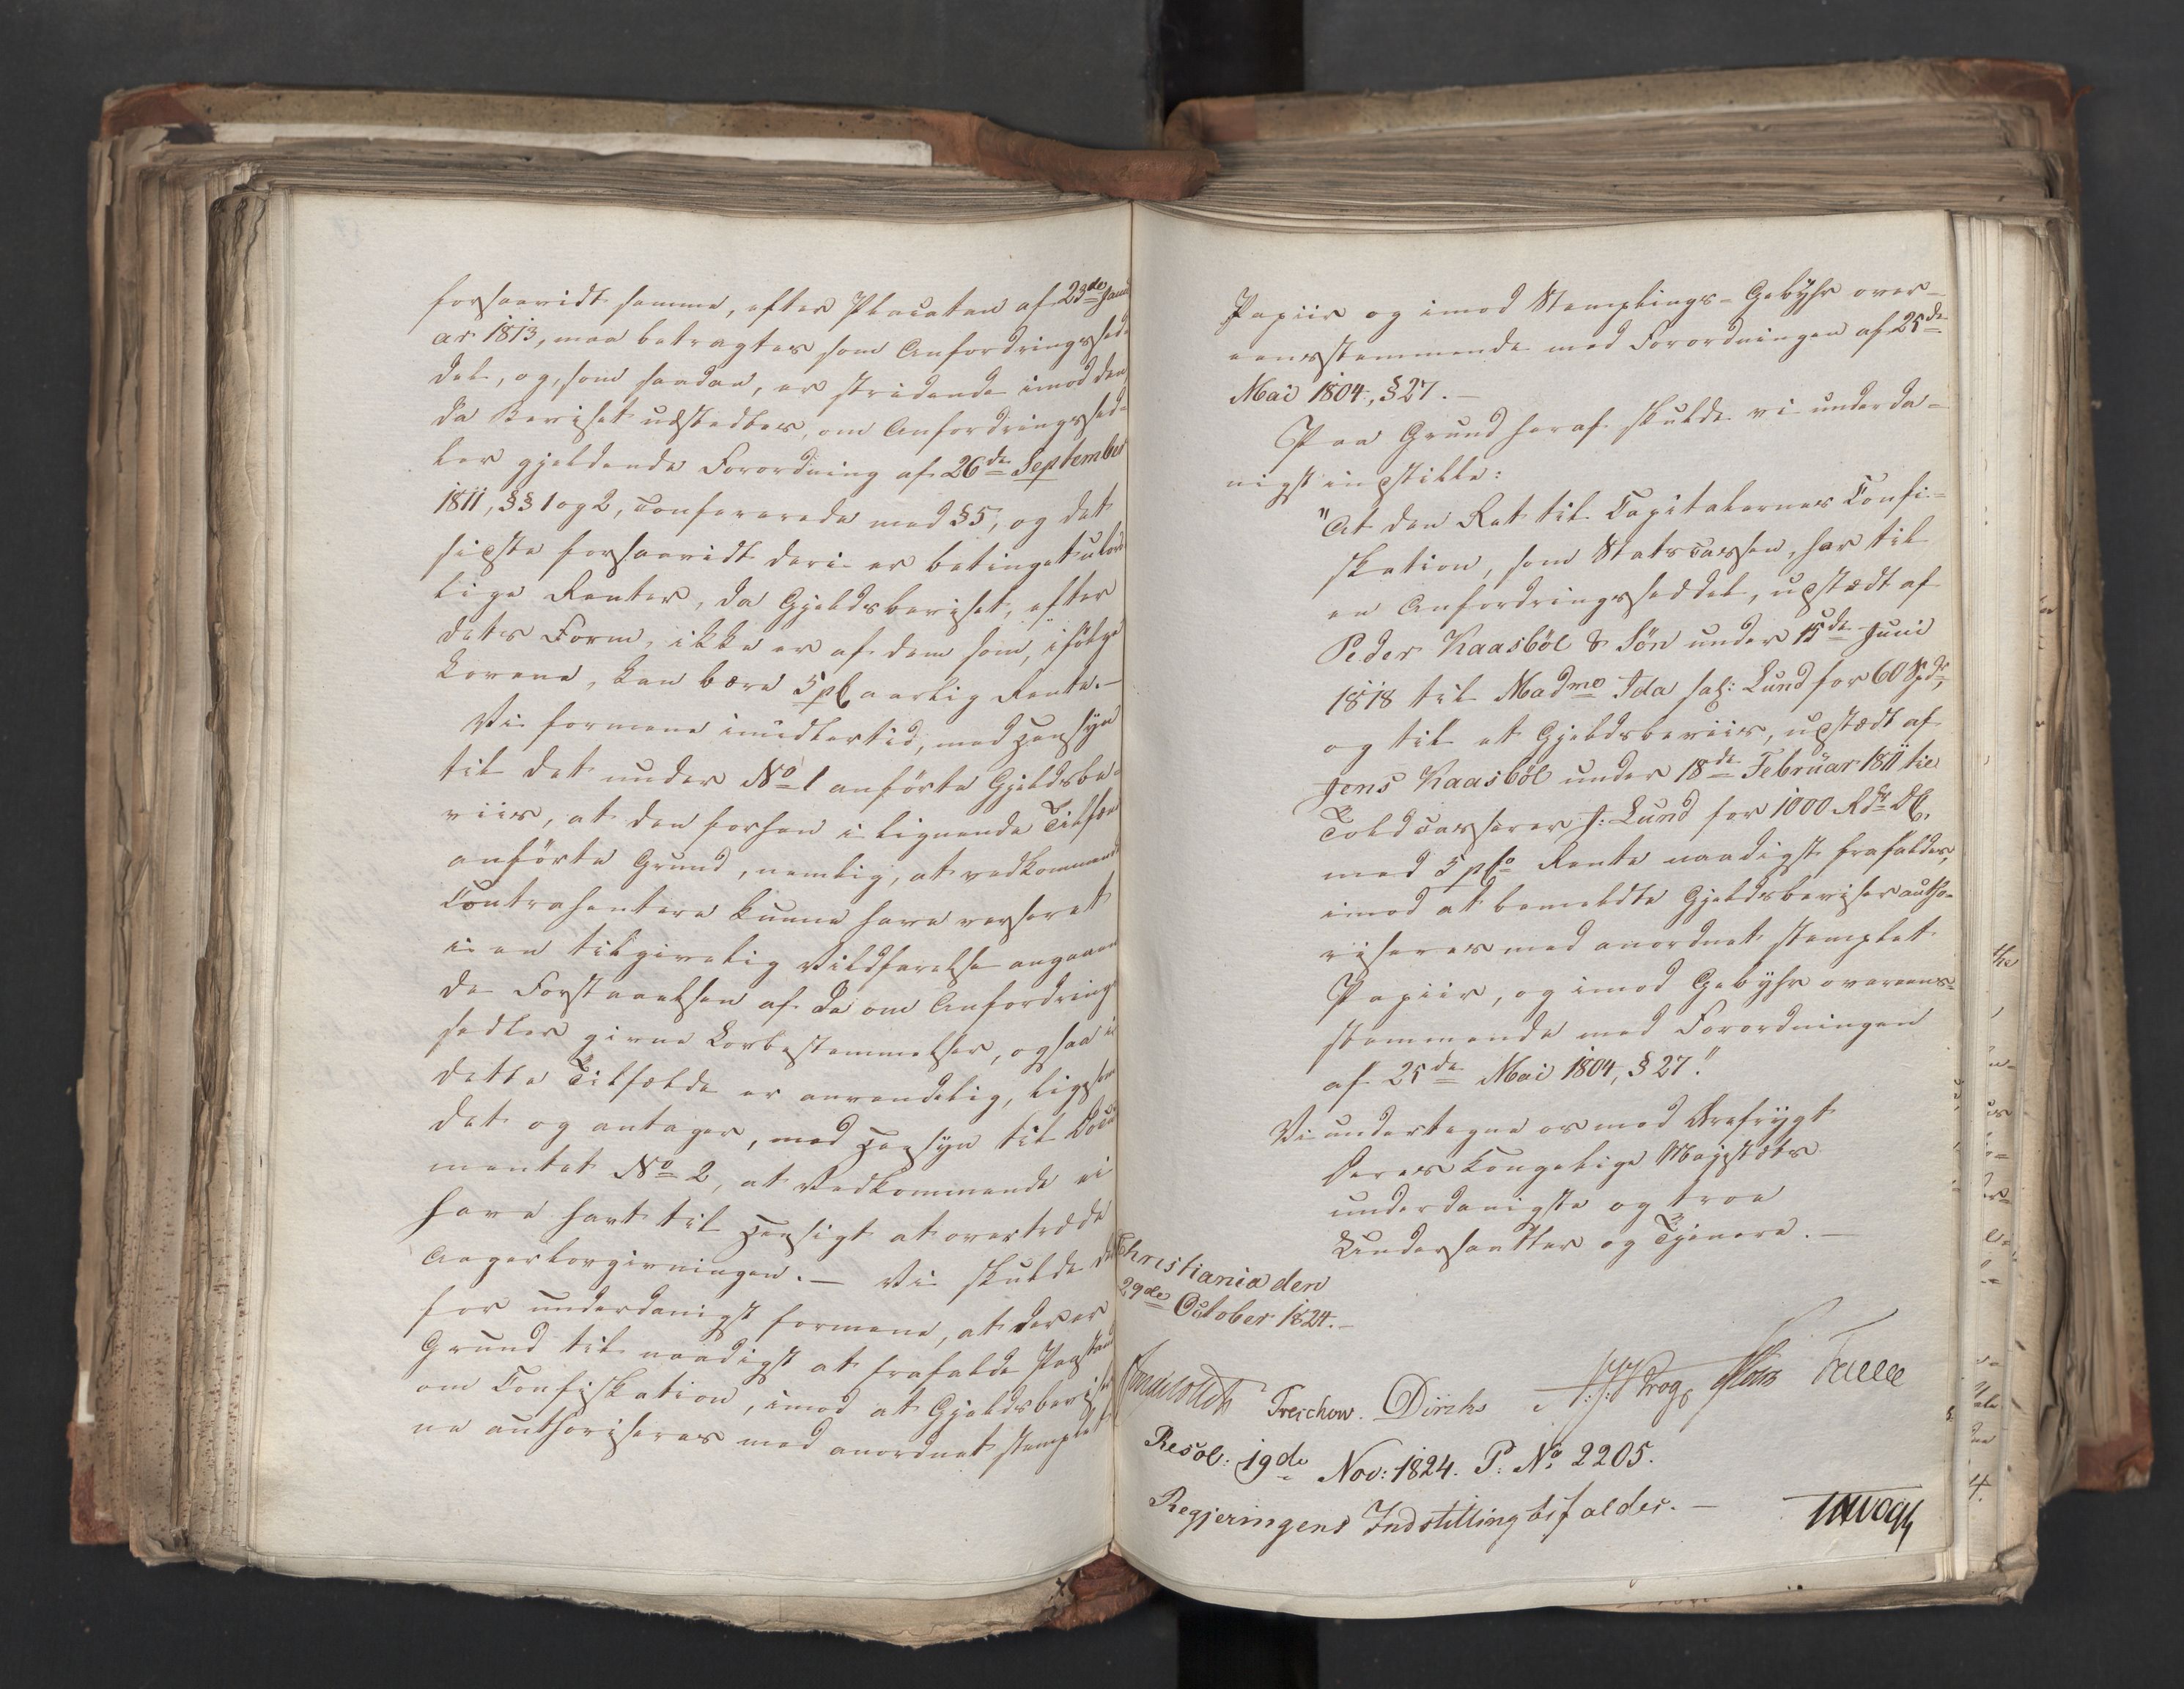 forsaavidt samme, efter Placaten af 23de Janu
ar 1813, maa betragtes som Anfordringssed-
del, og, som saadan, er stridende imod den,
da Beviset udstedtes, om Anfordringssed-
ler gjeldende Forordning af 26de September
1811, §§ 1 og 2, confererede med § 5, og det
sidste forsaavidt deri er betinget ulov-
lige Renter, da Gjeldsbeviset, efter
dets Form, ikke er af dem som, ifölge
Lovene, kan bære 5 pC aarlig Rente.—
Vi formene imidlertid, med Hensyn
til det under No 1 anförte Gjeldsbe-
viis, at den forhen i lignende Tilfæl
anförte Grund, nemlig, at vedkommende
Contrahentere kunne have verseret
i en tilgivelig Vildfarelse angaaen
de Forstaaelsen af de om Anfordrings
sedler givne Lovbestemmelser, ogsaa i
dette Tilfælde er anvendelig, ligesom
det og antages, med Hensyn til Docu
mentet No 2, at Vedkommende ei
have havt til Hensigt at overtræde
Aagerlovgivningen.— Vi skulde der
for underdanigst formene, at der er
Grund til naadigst at frafalde Paastand
om Confiskation, imod at Gjeldsbeviser
ne authoriseres med anordnet stemplet
Papiir og imod Stemplings-Gebyhr over-
eensstemmende med Forordningen af 25de
Mai 1804, § 27.—
Paa Grund heraf skulde vi underda-
nigst indstille:
"At den Ret til Capitalernes Confi-
skation, som Statscassen har til
en Anfordringsseddel, udstædt af
Peder Kaasböl & Sön under 15de Juni
1818 til Madme Ida sal: Lund for 60 Spdr,
og til et Gjeldsbeviis, udstædt af
Jens Kaasböl under 18de Februar 1811 til
Toldcasserer J: Lund for 1000 Rdr DC,
med 5 pCo Rente naadigst frafaldes,
imod at bemeldte Gjeldsbeviser autho-
riseres med anordnet stemplet
Papiir, og imod Gebyhr overeens-
stemmende med Forordningen
af 25de Mai 1804, § 27."
Vi undertegne os med Ærefrygt
Deres Kongelige Majestæts
underdanigste og troe
Undersaatter og Tjenere.—
Christiania den
29de October 1824.—
Treschow. Diriks Krog Falle
Resol: 19de Nov: 1824. P: No 2205.
Regjeringens Indstilling bifaldes.—